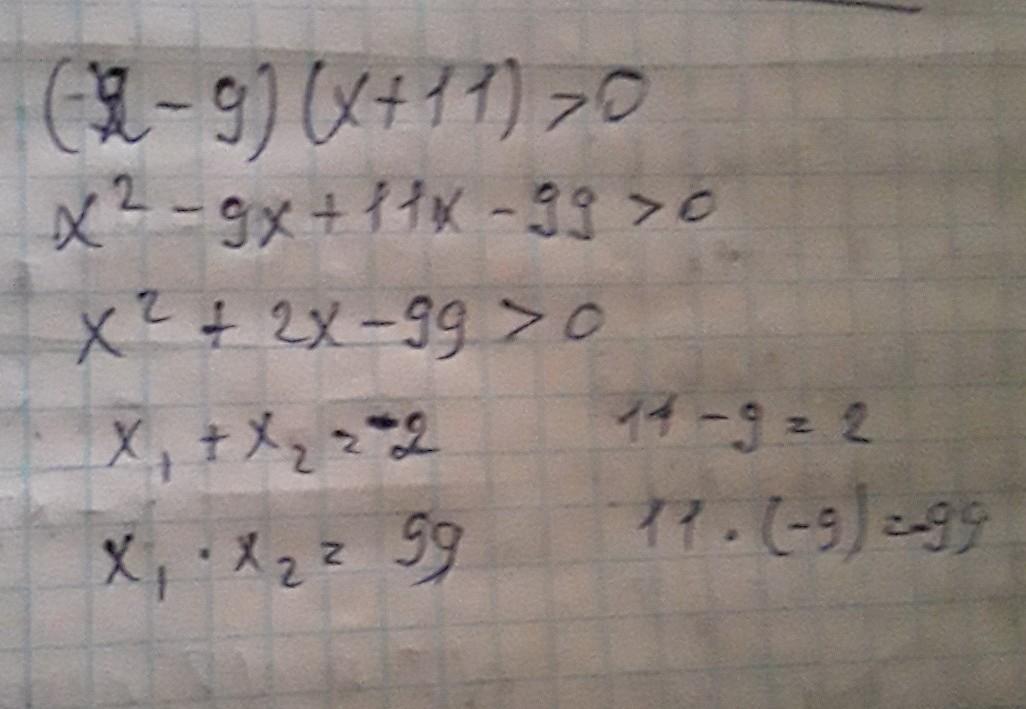 (x - 9) (x + 11) > 0
x² - 9x + 11x - 99 > 0
x² + 2x - 99 > 0
x₁ + x₂ = -2 11 - 9 = 2
x₁ · x₂ = 99 11 · (-9) = -99